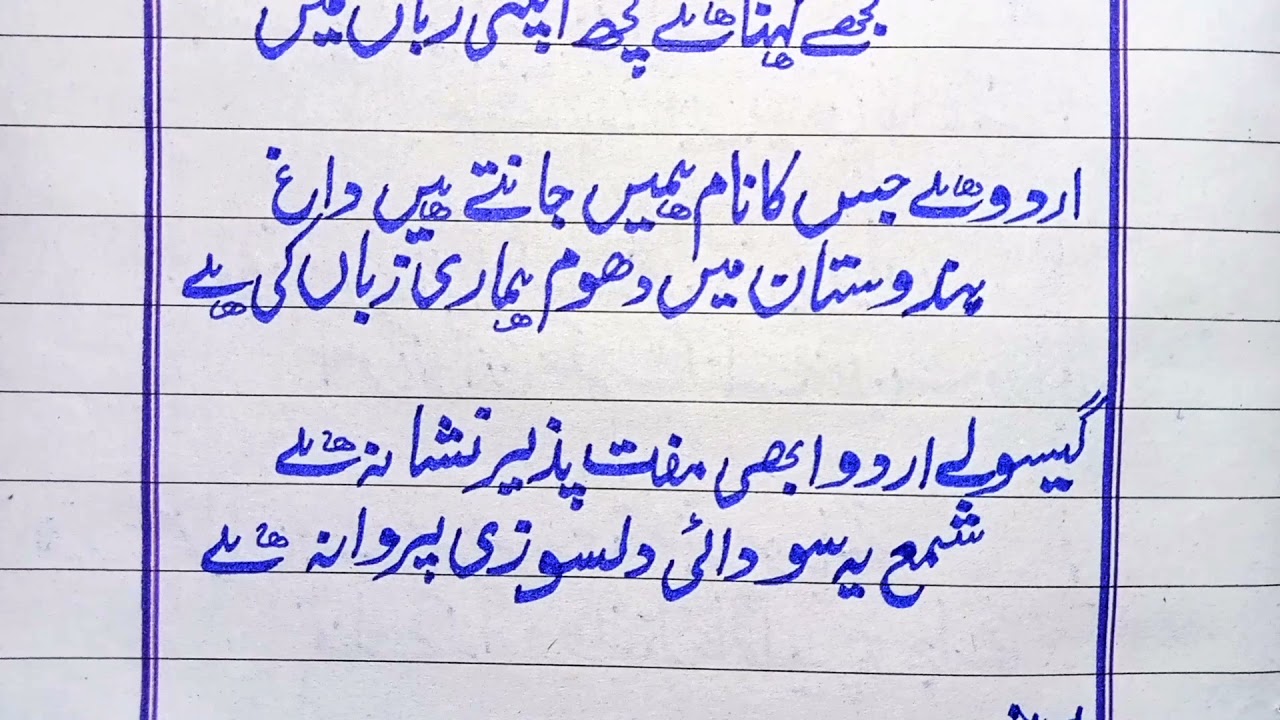 مجھے کہنا ہے کچھ اپنی زباں میں
اردو ہے جس کا نام ہمیں جانتے ہیں داغ
ہندوستان میں دھوم ہماری زباں کی ہے
گیسوئے اردو ابھی منت پذیر نشانہ ہے
شمع یہ سودائی دلسوزی پروانہ ہے